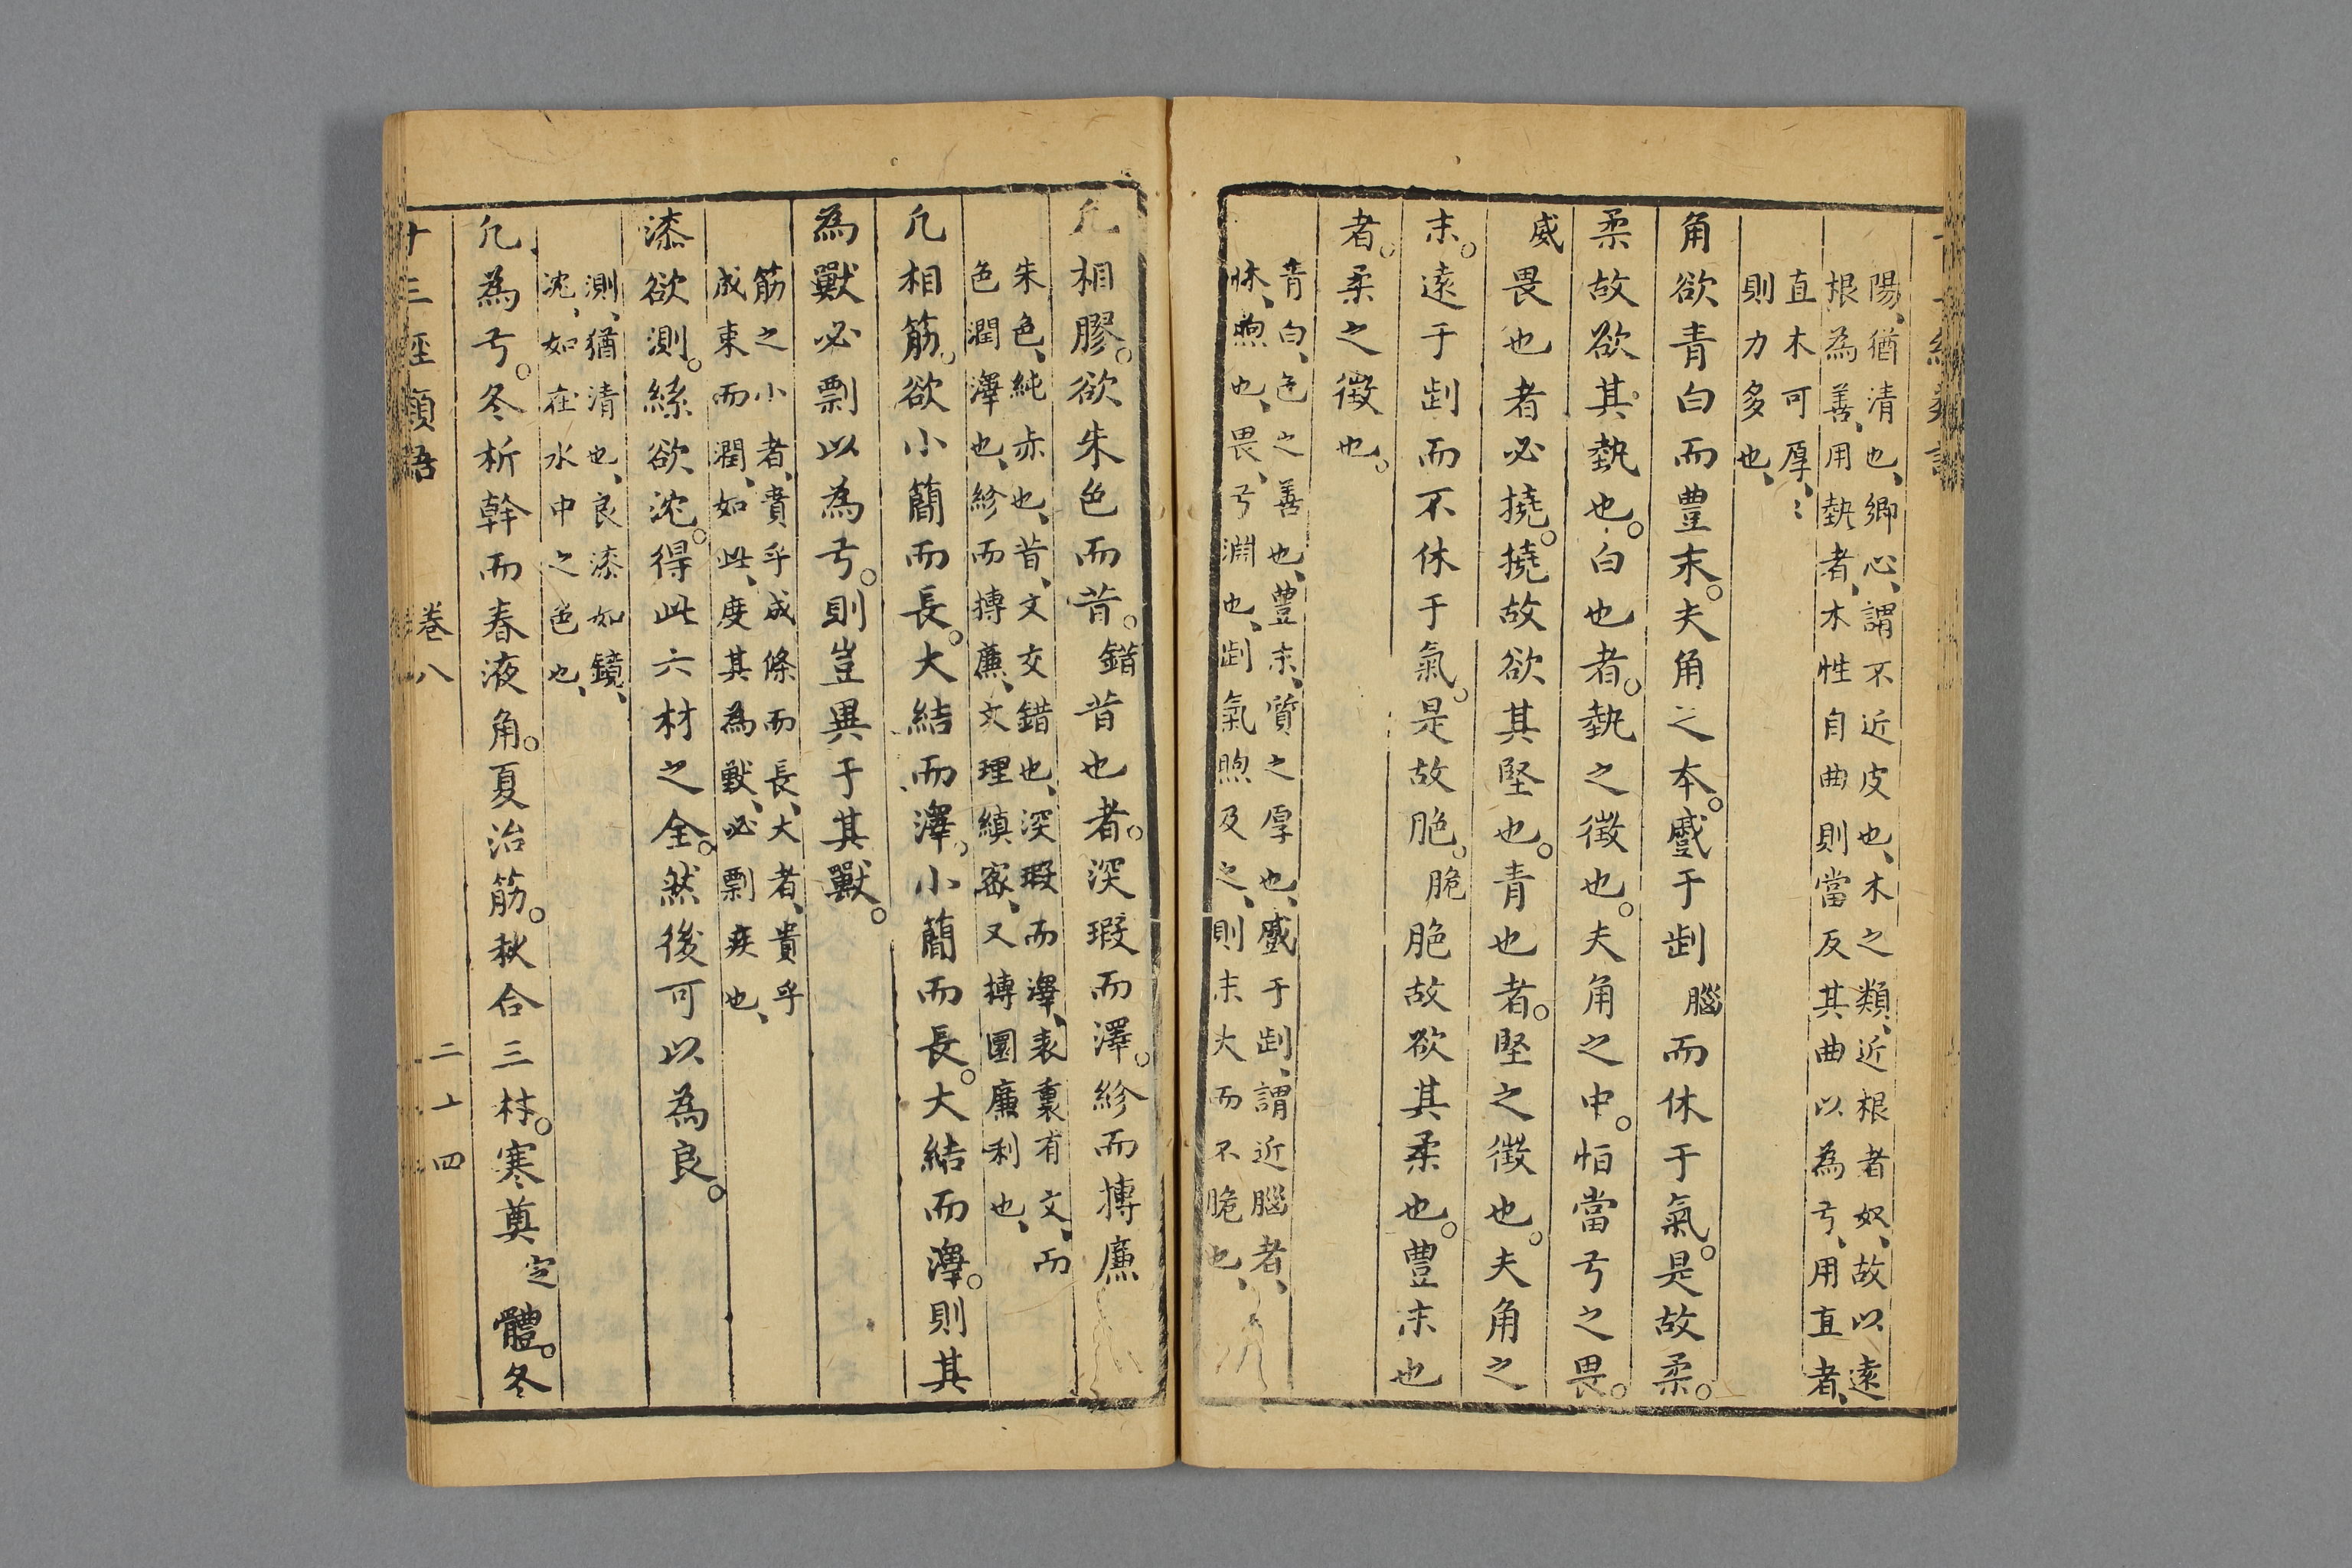 陽、猶清也、鄉心、謂不近皮也、木之類、近根者奴、故以遠
根為善、用埶者、木性自曲則當反其曲以為弓、用直者、
直木可厚、〻
則力多也、
角欲青白而豊末。夫角之本。蹙于㓭腦而休于氣。是故柔。
柔故欲其埶也。白也者。埶之徵也。夫角之中。恒當弓之畏。
威畏也者必撓。撓故欲其堅也。青也者。堅之徵也。夫角之
末。遠于㓭而不休于氣。是故脃。脆脃故欲其柔也。豊末也
者。柔之徵也。
青白、色之善也、豊末、質之厚也、蹙于㓭、謂近腦者、
休、煦也、畏、弓淵也、㓭氣煦及之、則末大而不脆也、
凡相膠。欲朱色而昔。錯昔也者。深瑕而澤。紾而摶廉
朱色、純赤也、昔、文交錯也、深瑕而澤、表裏有文、而
色潤澤也、紾而摶廉、文理縝密、又摶圜廉利也、
凡相筋。欲小簡而長。大結而澤。小簡而長。大結而澤。則其
為獸必剽以為弓。則豈異于其獸。
筋之小者、貴乎成條而長、大者、貴乎
成束而潤、如此、度其為獸、必剽疾也、
漆欲測。絲欲沈。得此六材之全。然後可以為良。
測、猶清也、良漆如鏡、
沈、如在水中之色也、
凡為弓。冬析幹而春液角。夏治筋。秋合三材。寒奠定體。冬
十三經類語 卷八 二十四